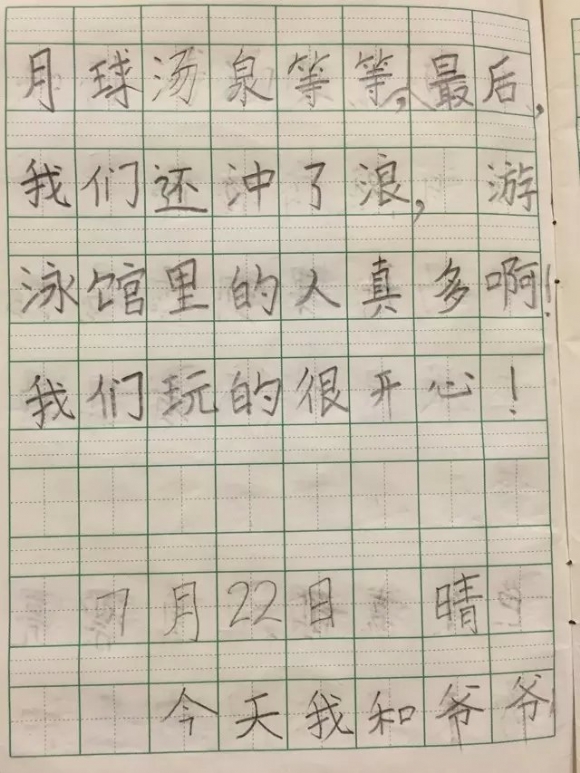 月球汤泉等等,最后,
我们还冲了浪, 游
泳馆里的人真多啊!
我们玩的很开心!
7月22日 晴
今天我和爷爷